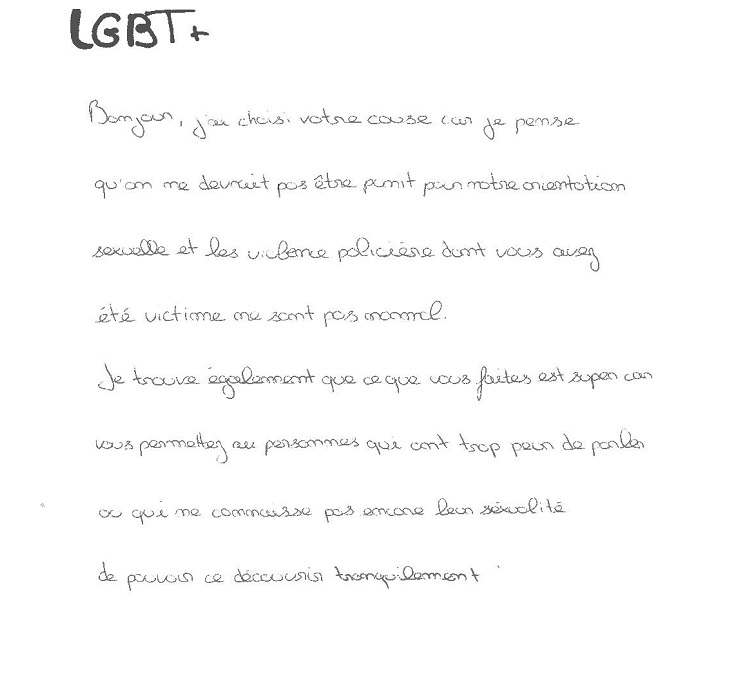 LGBT+
Bonjour, j'ai choisi votre cause car je pense
qu'on ne devrait pas être punit pour notre orientation
sexuelle et les violence policière dont vous avez
été victime ne sont pas normal.
Je trouve également que ce que vous faites est super car
vous permettez au personnes qui ont trop peur de parler
ou qui ne connaisse pas encore leur séxualité
de pouvoir ce découvrir tranquilement